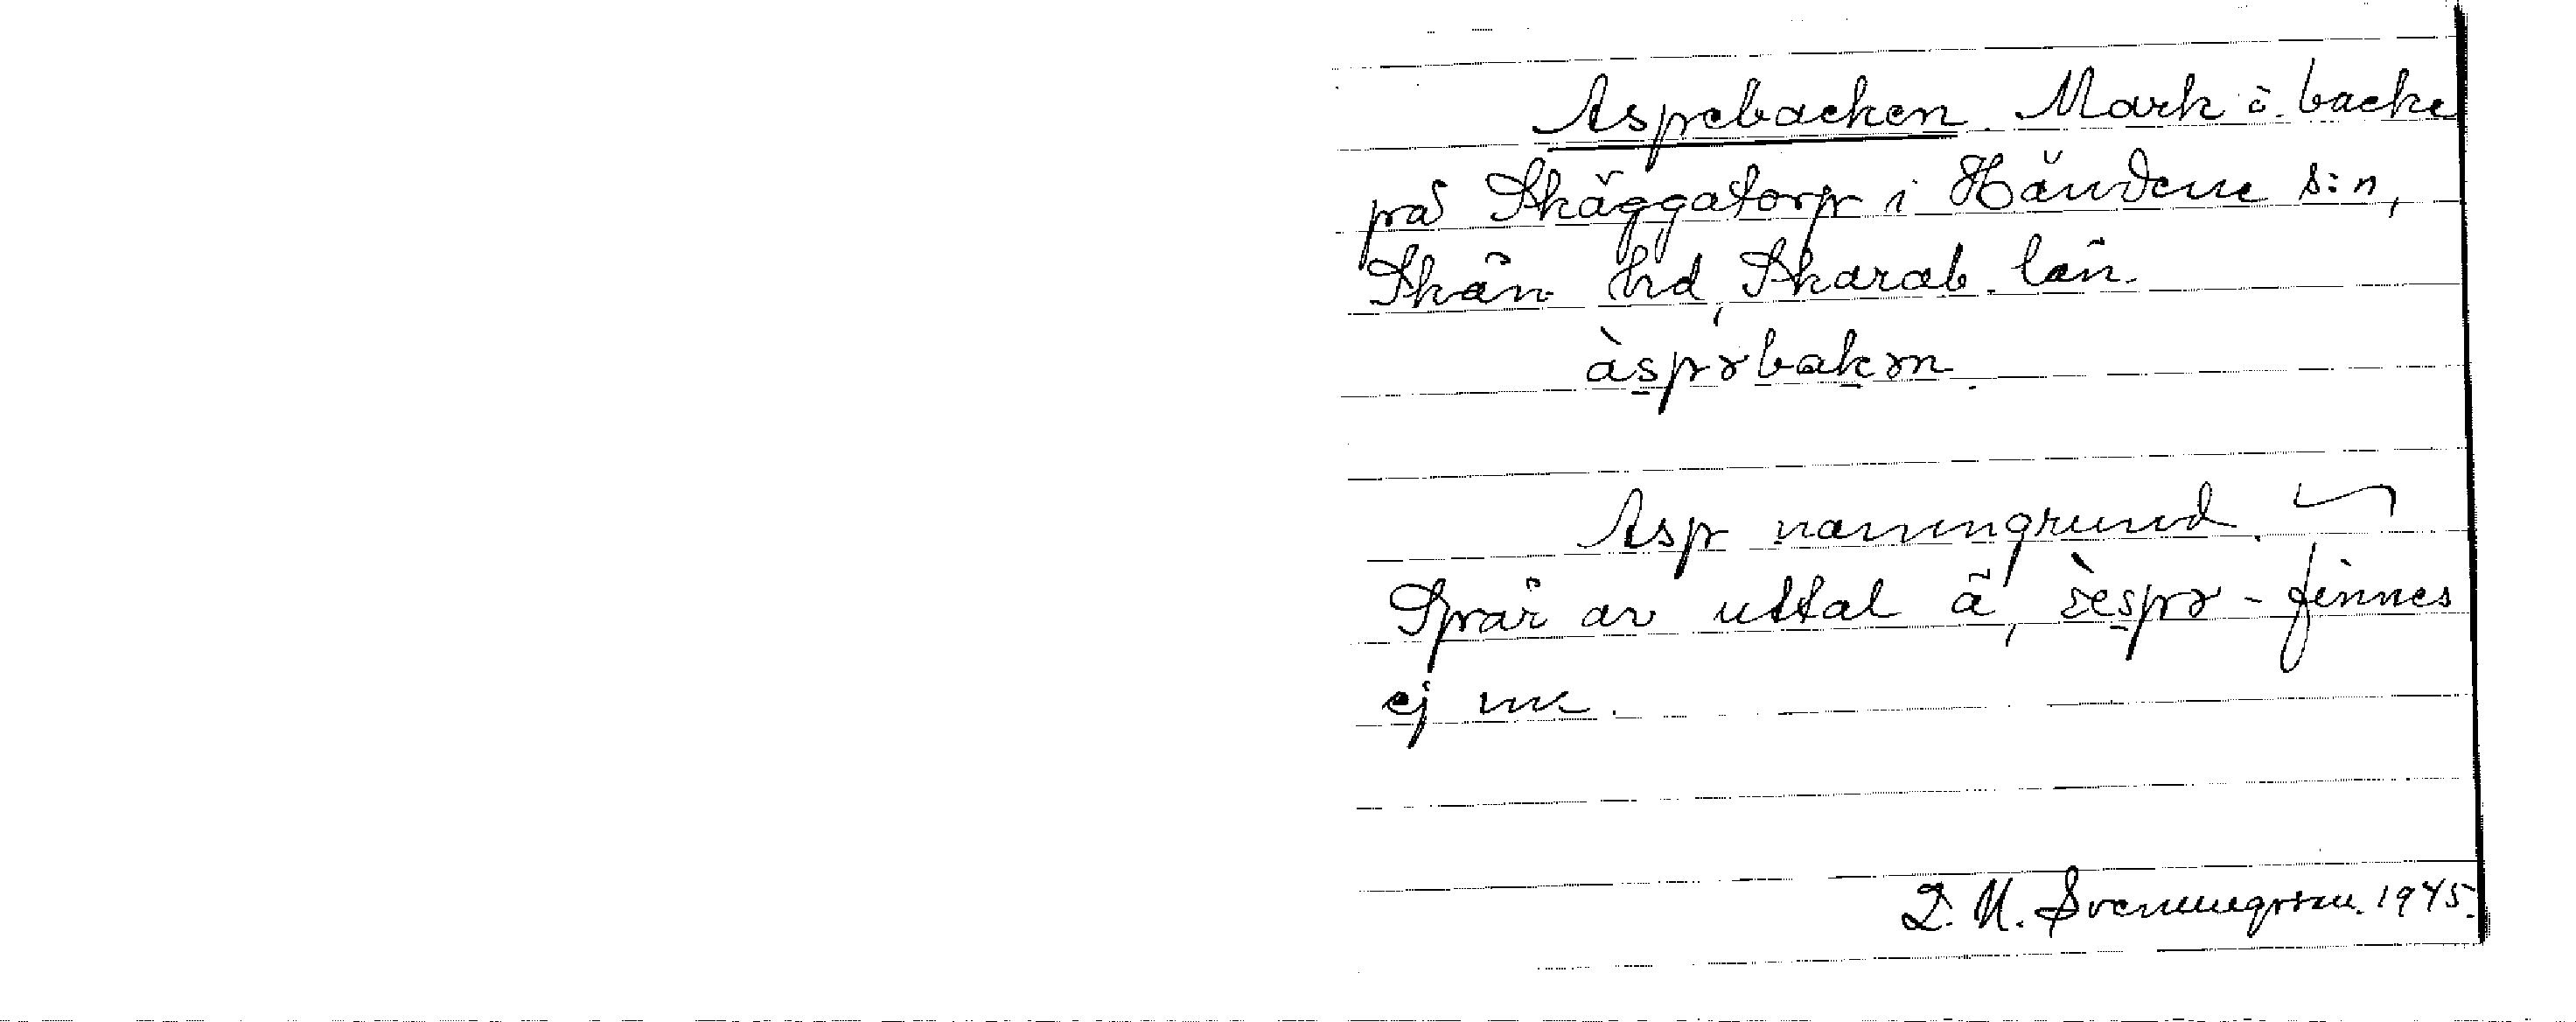 Aspebacken. Mark o. backe
på Skäggatorp i Händene s:n,
Skån. hd, Skarab. län.
àspəbakən.
Asp namngrund.
Spår av uttal ä, ὲspə- finnes
ej nu.
D. N. Svenningsson. 1945.